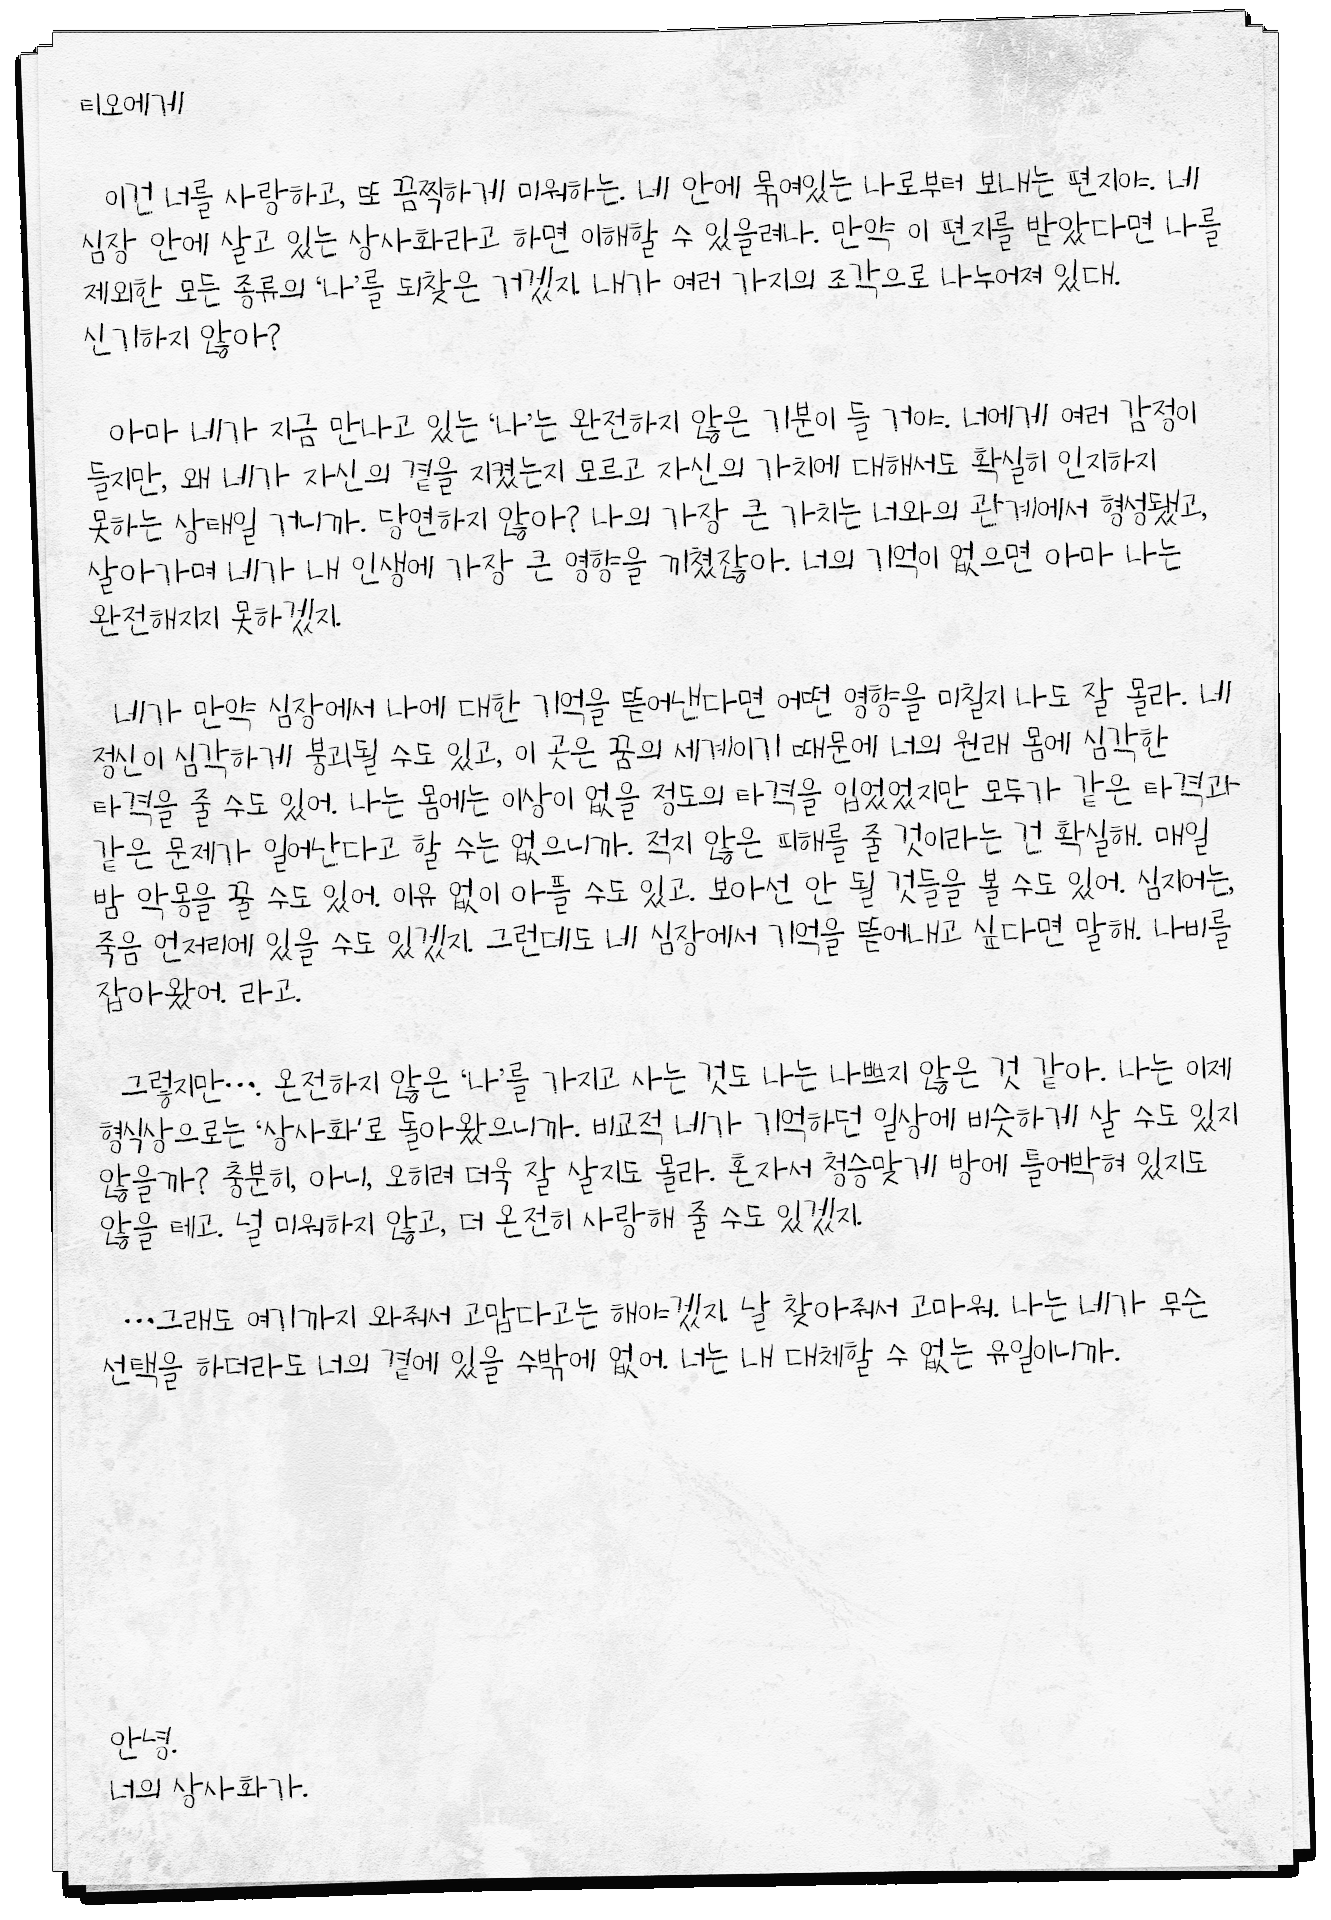 티오에게
이건 너를 사랑하고, 또 끔찍하게 미워하는. 네 안에 묶여있는 나로부터 보내는 편지야. 네
심장 안에 살고 있는 상사화라고 하면 이해할 수 있을려나. 만약 이 편지를 받았다면 나를
제외한 모든 종류의 ‘나’를 되찾은 거겠지. 내가 여러 가지의 조각으로 나누어져 있대.
신기하지 않아?
아마 네가 지금 만나고 있는 ‘나’는 완전하지 않은 기분이 들 거야. 너에게 여러 감정이
들지만, 왜 네가 자신의 곁을 지켰는지 모르고 자신의 가치에 대해서도 확실히 인지하지
못하는 상태일 거니까. 당연하지 않아? 나의 가장 큰 가치는 너와의 관계에서 형성됐고,
살아가며 네가 내 인생에 가장 큰 영향을 끼쳤잖아. 너의 기억이 없으면 아마 나는
완전해지지 못하겠지.
네가 만약 심장에서 나에 대한 기억을 뜯어낸다면 어떤 영향을 미칠지 나도 잘 몰라. 네
정신이 심각하게 붕괴될 수도 있고, 이 곳은 꿈의 세계이기 때문에 너의 원래 몸에 심각한
타격을 줄 수도 있어. 나는 몸에는 이상이 없을 정도의 타격을 입었었지만 모두가 같은 타격과
같은 문제가 일어난다고 할 수는 없으니까. 적지 않은 피해를 줄 것이라는 건 확실해. 매일
밤 악몽을 꿀 수도 있어. 이유 없이 아플 수도 있고. 보아선 안 될 것들을 볼 수도 있어. 심지어는,
죽음 언저리에 있을 수도 있겠지. 그런데도 네 심장에서 기억을 뜯어내고 싶다면 말해. 나비를
잡아왔어. 라고.
그렇지만…. 온전하지 않은 ‘나’를 가지고 사는 것도 나는 나쁘지 않은 것 같아. 나는 이제
형식상으로는 ‘상사화’로 돌아왔으니까. 비교적 네가 기억하던 일상에 비슷하게 살 수도 있지
않을까? 충분히, 아니, 오히려 더욱 잘 살지도 몰라. 혼자서 청승맞게 방에 틀어박혀 있지도
않을 테고. 널 미워하지 않고, 더 온전히 사랑해 줄 수도 있겠지.
…그래도 여기까지 와줘서 고맙다고는 해야겠지. 날 찾아줘서 고마워. 나는 네가 무슨
선택을 하더라도 너의 곁에 있을 수밖에 없어. 너는 내 대체할 수 없는 유일이니까.
안녕.
너의 상사화가.